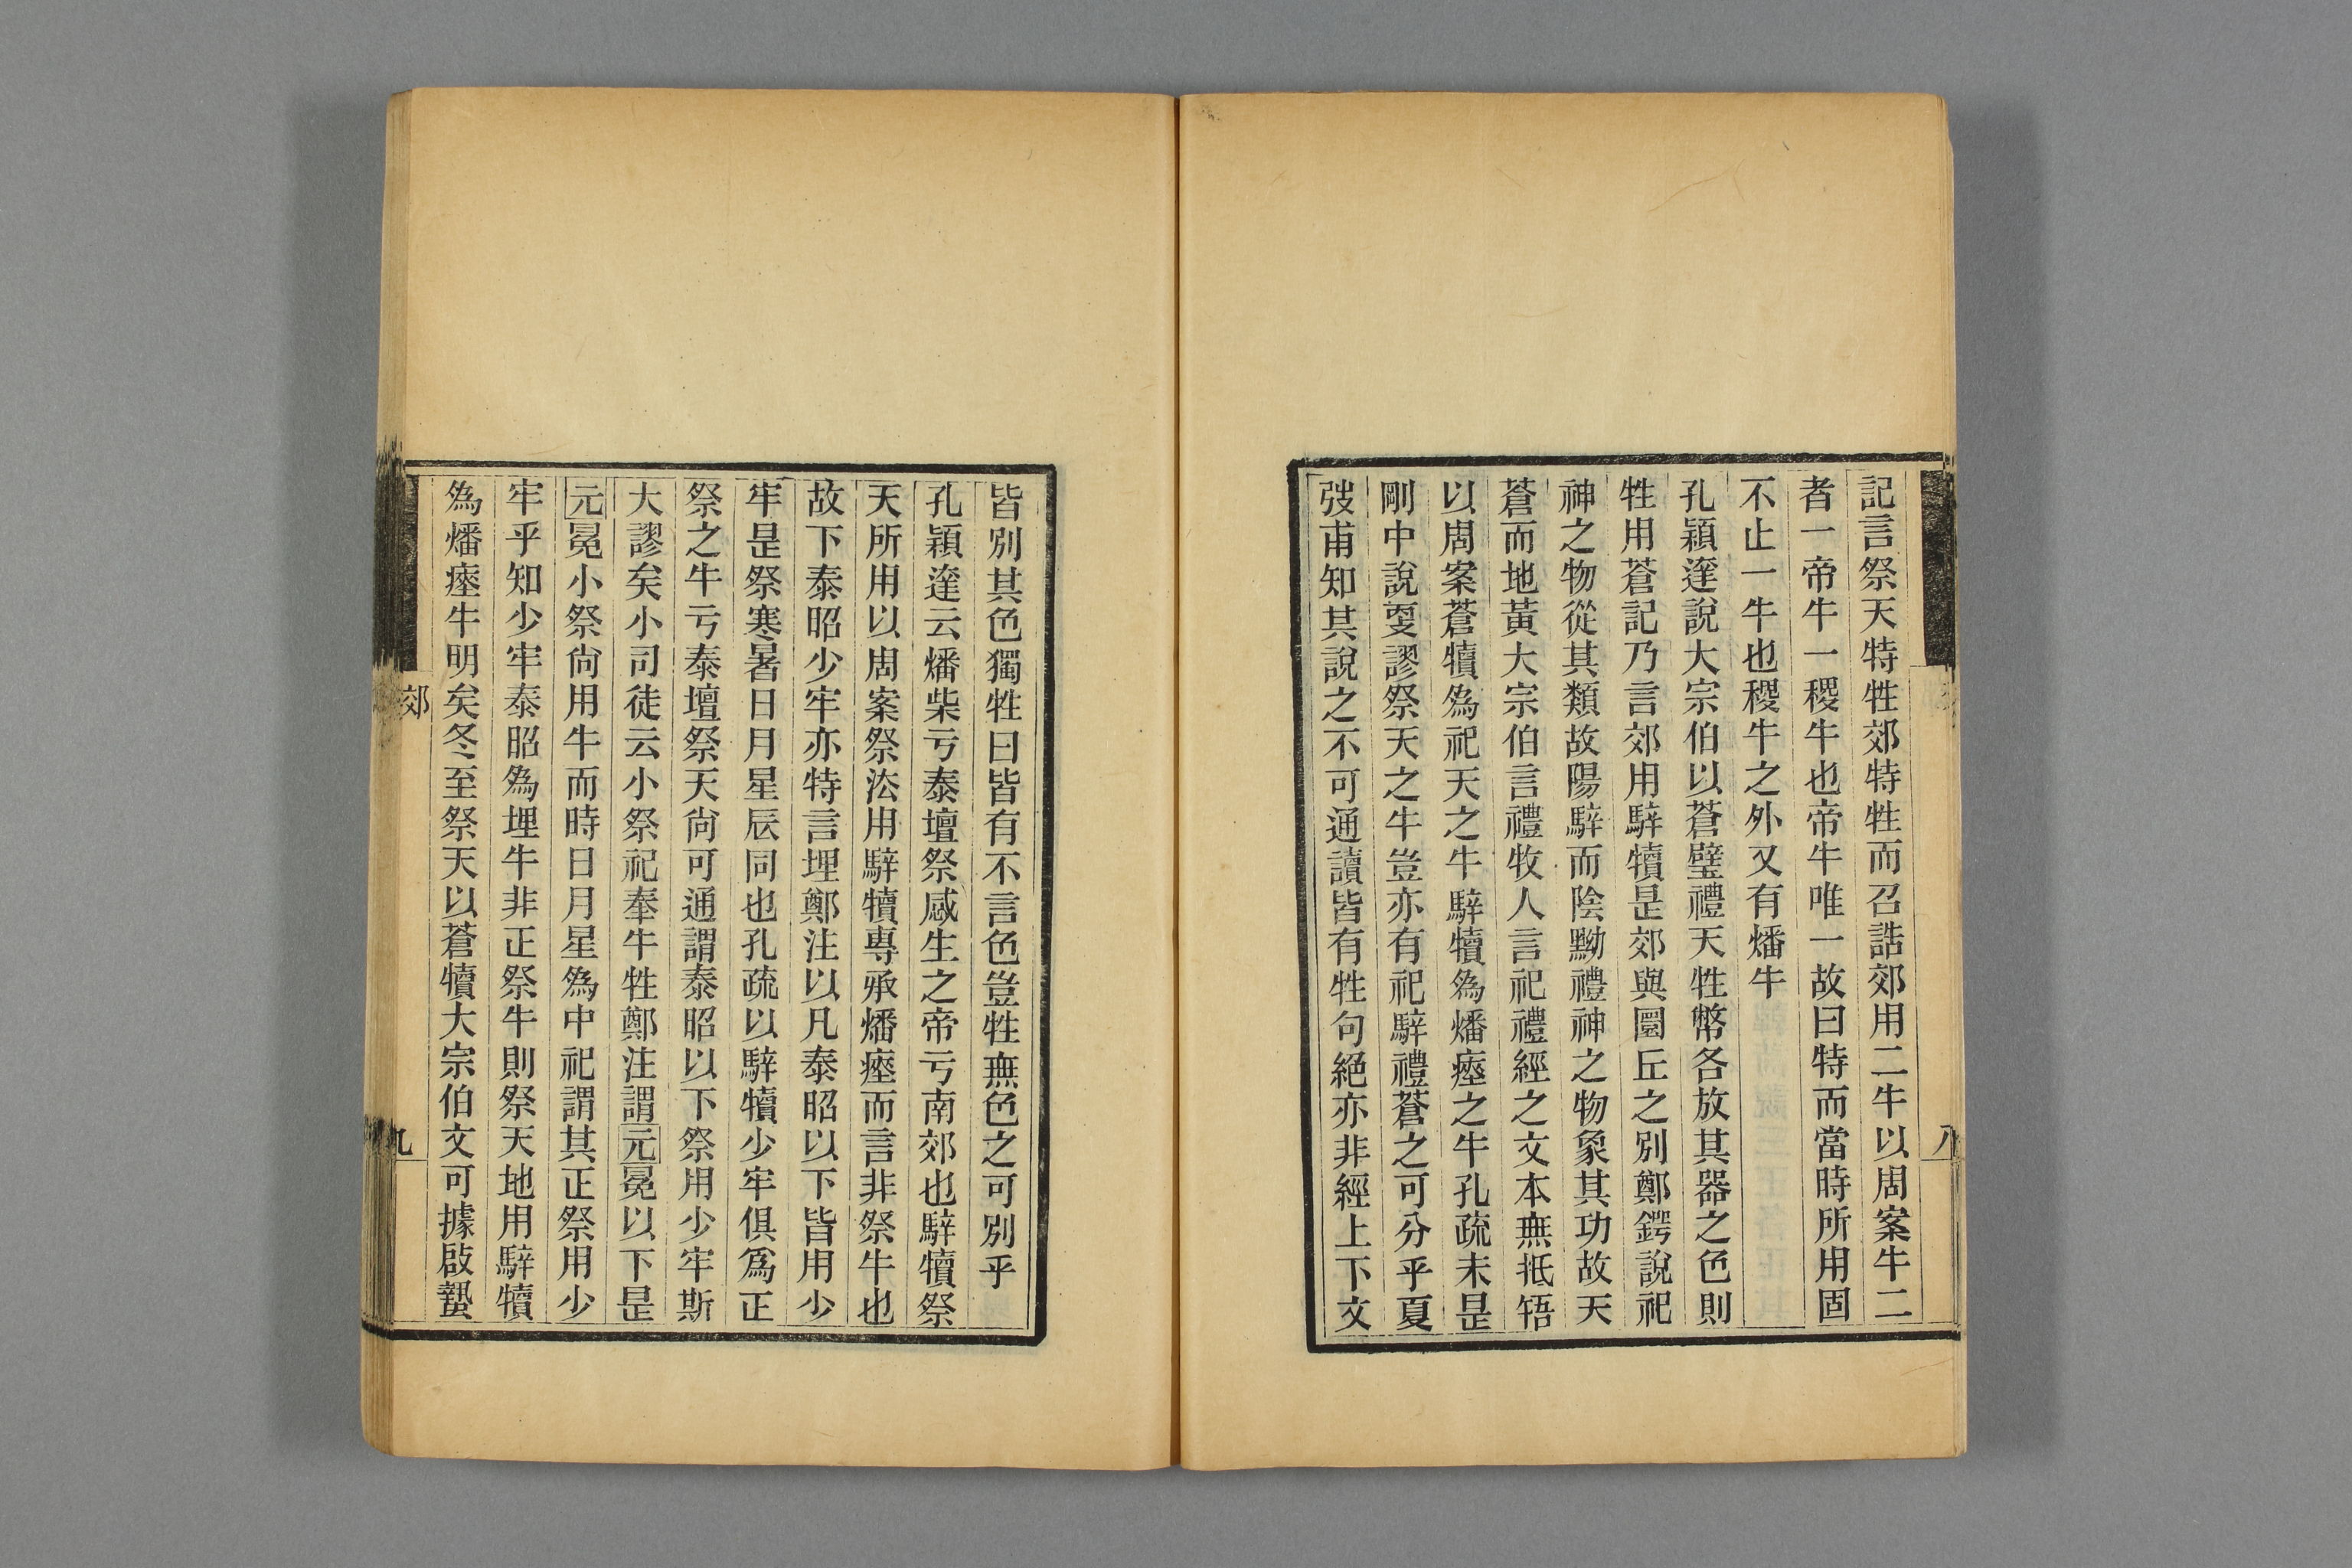 記言祭天特牲郊特牲而召誥郊用二牛以周案牛二
者一帝牛一稷牛也帝牛唯一故曰特而當時所用固
不止一牛也稷牛之外又有燔牛
孔穎達說大宗伯以蒼璧禮天牲幣各放其器之色則
牲用蒼記乃言郊用騂犢是郊與圜丘之別鄭鍔說祀
神之物從其類故陽騂而陰黝禮神之物象其功故天
蒼而地黃大宗伯言禮牧人言祀禮經之文本無抵牾
以周案蒼犢為祀天之牛騂犢為燔瘞之牛孔疏未是
剛中說更謬祭天之牛豈亦有祀騂禮蒼之可分乎夏
弢甫知其說之不可通讀皆有牲句絕亦非經上下文
八
皆別其色獨牲曰皆有不言色豈牲無色之可別乎
孔穎達云燔柴亏泰壇祭感生之帝亏南郊也騂犢祭
天所用以周案祭法用騂犢專承燔瘞而言非祭牛也
故下泰昭少牢亦特言埋鄭注以凡泰昭以下皆用少
牢是祭寒暑日月星辰同也孔疏以騂犢少牢俱爲正
祭之牛亏泰壇祭天尙可通謂泰昭以下祭用少牢斯
大謬矣小司徒云小祭祀奉牛牲鄭注謂元冕以下是
元冕小祭尙用牛而時日月星為中祀謂其正祭用少
牢乎知少牢泰昭為埋牛非正祭牛則祭天地用騂犢
為燔瘞牛明矣冬至祭天以蒼犢大宗伯文可據啟蟄
郊
九